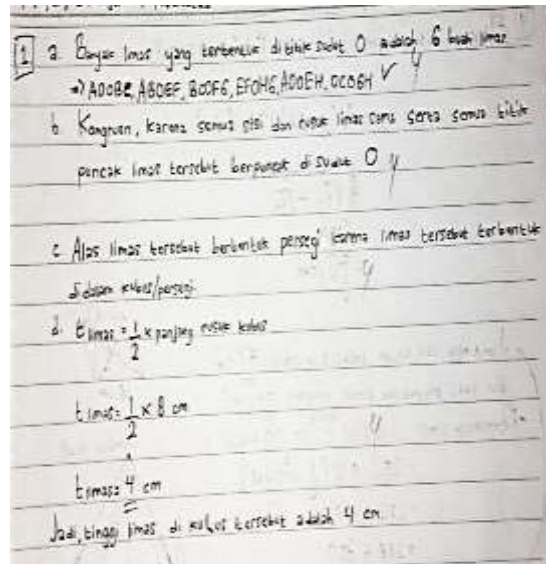 1 a. Banyak limas yang terbentuk di titik sudut O adalah : 6 buah limas
=> AOOBC, ABOEF, BCOFG, EFOHG, ADOEH, OCDGH
b. Kongruen, karena semua sisi dan rusuk limas sama serta semua titik
puncak limas tersebut berpuncak di sudut O
c. Alas limas tersebut berbentuk persegi karena limas tersebut terbentuk
di dalam kubus/persegi.
d. t limas = 1/2 x panjang rusuk kubus
t limas = 1/2 x 8 cm
t limas = 4 cm
Jadi, tinggi limas di kubus tersebut adalah 4 cm.